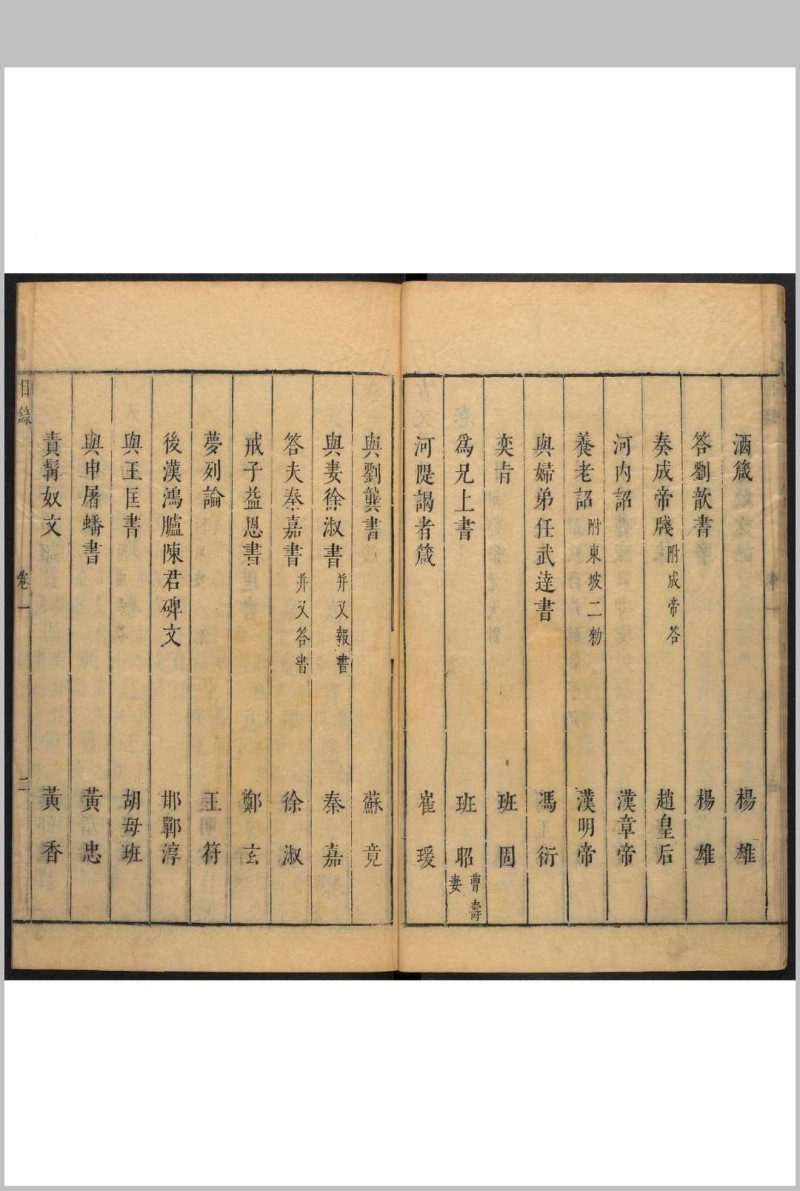 酒箴 楊雄
答劉歆書 楊雄
奏成帝牋 附成帝答 趙皇后
河內詔 漢章帝
養老詔 附東坡二勑 漢明帝
與婦弟任武達書 馮衍
奕旨 班固
為兄上書 班昭 曹壽妻
河隄謁者箴 崔瑗
與劉龔書 蘇竟
與妻徐淑書 并又報書 秦嘉
答夫秦嘉書 并又答書 徐淑
戒子益恩書 鄭玄
夢列論 王符
後漢鴻臚陳君碑文 邯鄲淳
與王匡書 胡母班
與申屠蟠書 黃忠
責髯奴文 黃香
目錄 卷一 二